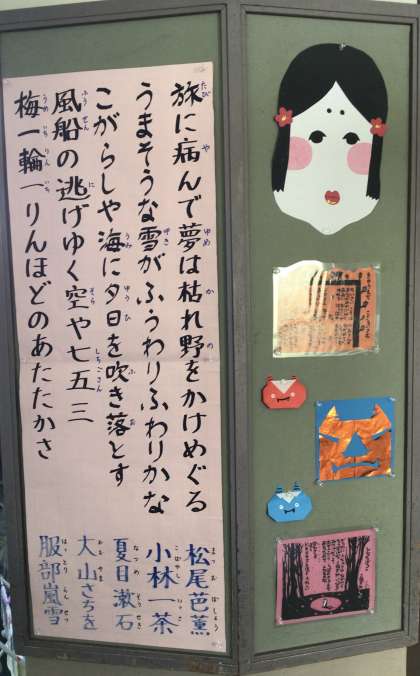 旅に病んで夢は枯れ野をかけめぐる
松尾芭蕉
うまそうな雪がふうわりふわりかな
小林一茶
こがらしや海に夕日を吹き落とす
夏目漱石
風船の逃げゆく空や七五三
大山さちを
梅一輪一りんほどのあたたかさ
服部嵐雪